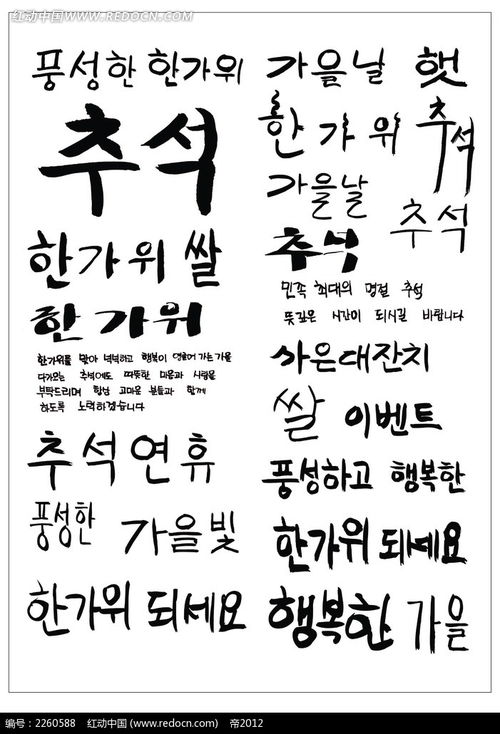 红动中国 WWW.REDOCN.COM
풍성한 한가위
추석
한가위 쌀
한가위
한가위를 맞아 넉넉하고 행복이 영글어 가는 가을
다가오는 추석에도 따뜻한 마음과 사랑을
부탁드리며 항상 고마운 분들과 함께
하도록 노력하겠습니다
추석연휴
풍성한
가을빛
한가위 되세요
가을날 햇
한가위 추석
가을날
추석
추석
민족 최대의 명절 추석
뜻깊은 시간이 되시길 바랍니다
사은대잔치
쌀 이벤트
풍성하고 행복한
한가위 되세요
행복한 가을
编号：2260588 红动中国 (www.redocn.com) 帝2012